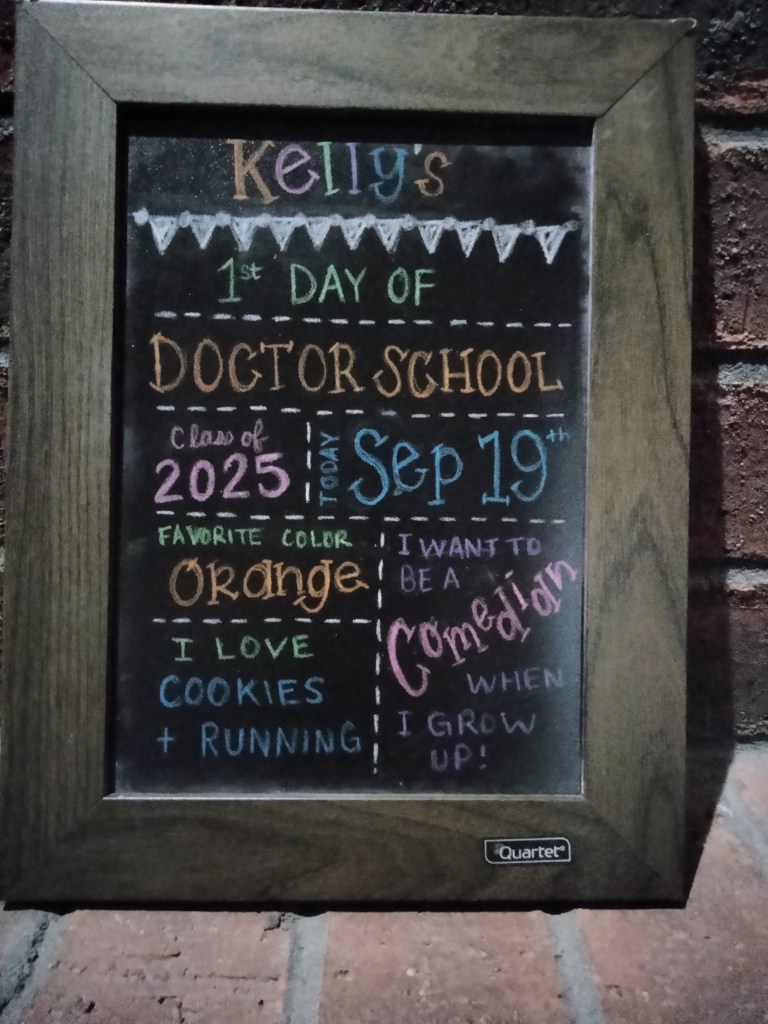 Kelly's
1st DAY OF
DOCTOR SCHOOL
Class of
2025
TODAY
Sep 19th
FAVORITE COLOR
Orange
I LOVE
COOKIES
+ RUNNING
I WANT TO
BE A
Comedian
WHEN
I GROW
UP!
Quartet®